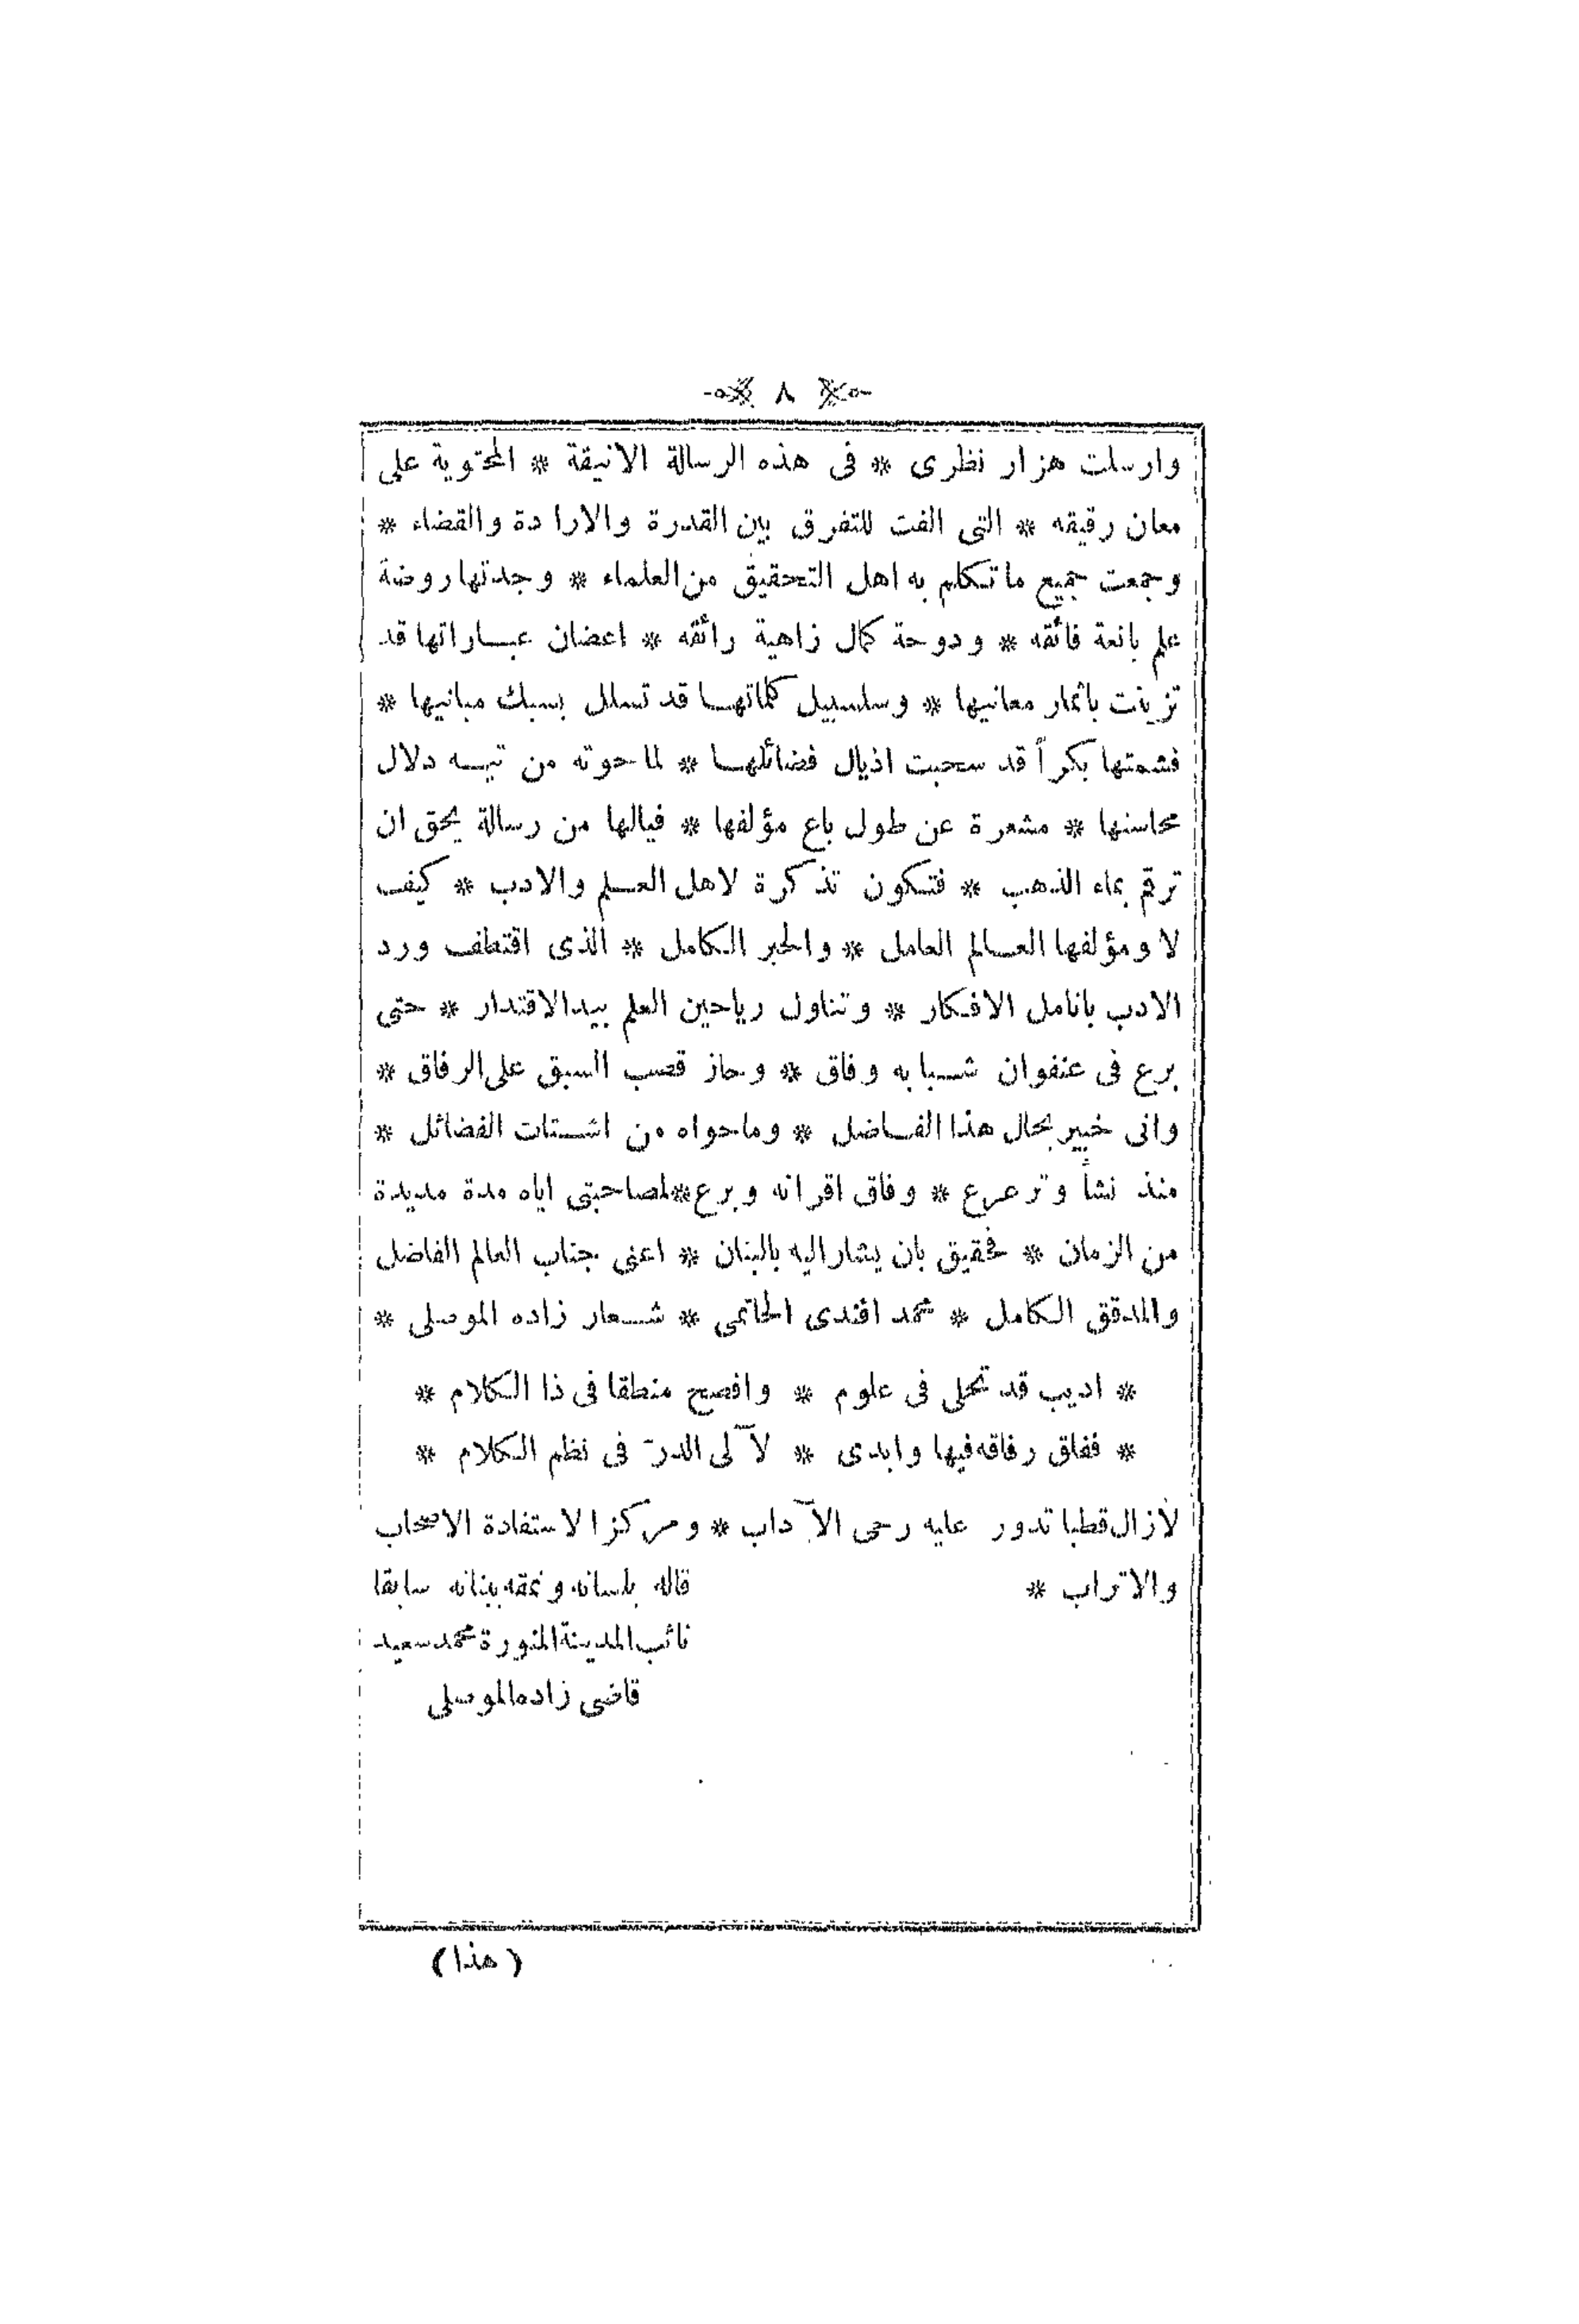 ٨
وارسلت هزار نظرى * فى هذه الرسالة الانيقة * المحتوية على
معان رقيقه * التى الفت للتفرق بين القدرة والارادة والقضاء *
وجمعت جميع ماتكلم به اهل التحقيق من العلماء * وجدتها روضة
علم يانعة فائقه * ودوحة كمال زاهية رائقه * اعضان عباراتها قد
تزينت باثمار معانيها * وسلسبيل كلماتها قد تسلل بسبك مبانيها *
فشمتها بكراً قد سحبت اذيال فضائلها * لما حوته من تيه دلال
محاسنها * مشعرة عن طول باع مؤلفها * فيالها من رسالة يحق ان
ترقم بماء الذهب * فتكون تذكرة لاهل العلم والادب * كيف
لا ومؤلفها العالم العامل * والحبر الكامل * الذى اقتطف ورد
الادب بانامل الافكار * وتناول رياحين العلم بيد الاقتدار * حتى
برع فى عنفوان شبابه وفاق * وحاز قصب السبق على الرفاق *
وانى خبير بحال هذا الفاضل * وماحواه من اشتات الفضائل *
منذ نشأ وترعرع * وفاق اقرانه وبرع * لمصاحبتى اياه مدة مديدة
من الزمان * فحقيق بان يشار اليه بالبنان * اعنى جناب العالم الفاضل
والمدقق الكامل * محمد افندى الحاتمى * شعار زاده الموصلى *
* اديب قد تحلى فى علوم * وافصح منطقا فى ذا الكلام *
* ففاق رفاقه فيها وابدى * لآلى الدرّ فى نظم الكلام *
لازال قطبا تدور عليه رحى الآداب * ومركزا لاستفادة الاصحاب
والاتراب *
قاله بلسانه ونمقه ببنانه سابقا
نائب المدينة المنورة محمد سعيد
قاضى زاده الموصلى
(هذا)